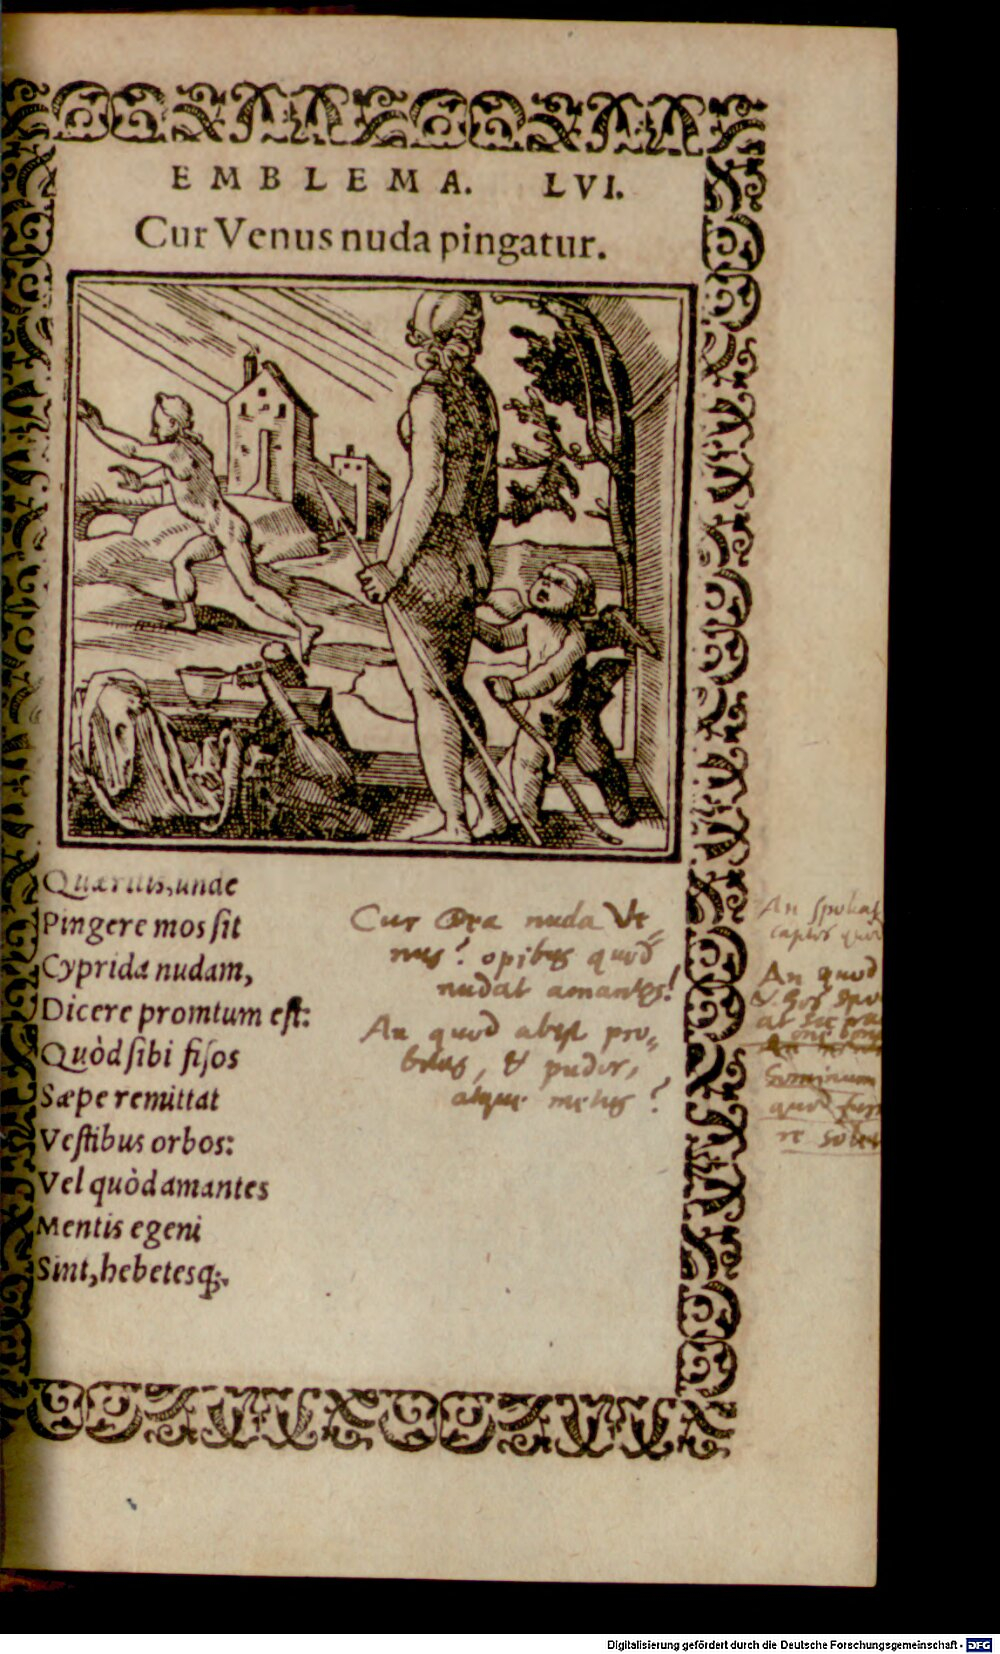 EMBLEMA. LVI.
Cur Venus nuda pingatur.
Quæritis, unde
Pingere mos ſit
Cyprida nudam,
Dicere promtum eſt:
Quòd ſibi fiſos
Sæpe remittat
Veſtibus orbos:
Vel quòd amantes
Mentis egeni
Sint, hebetesq́;.
Cur nuda Ve-
nus? opibus quod
nudat amantes!
An quod abest pro-
bitas, & pudor,
atque metus?
An
quod
An quod
quod
solet
Digitalisierung gefördert durch die Deutsche Forschungsgemeinschaft - DFG